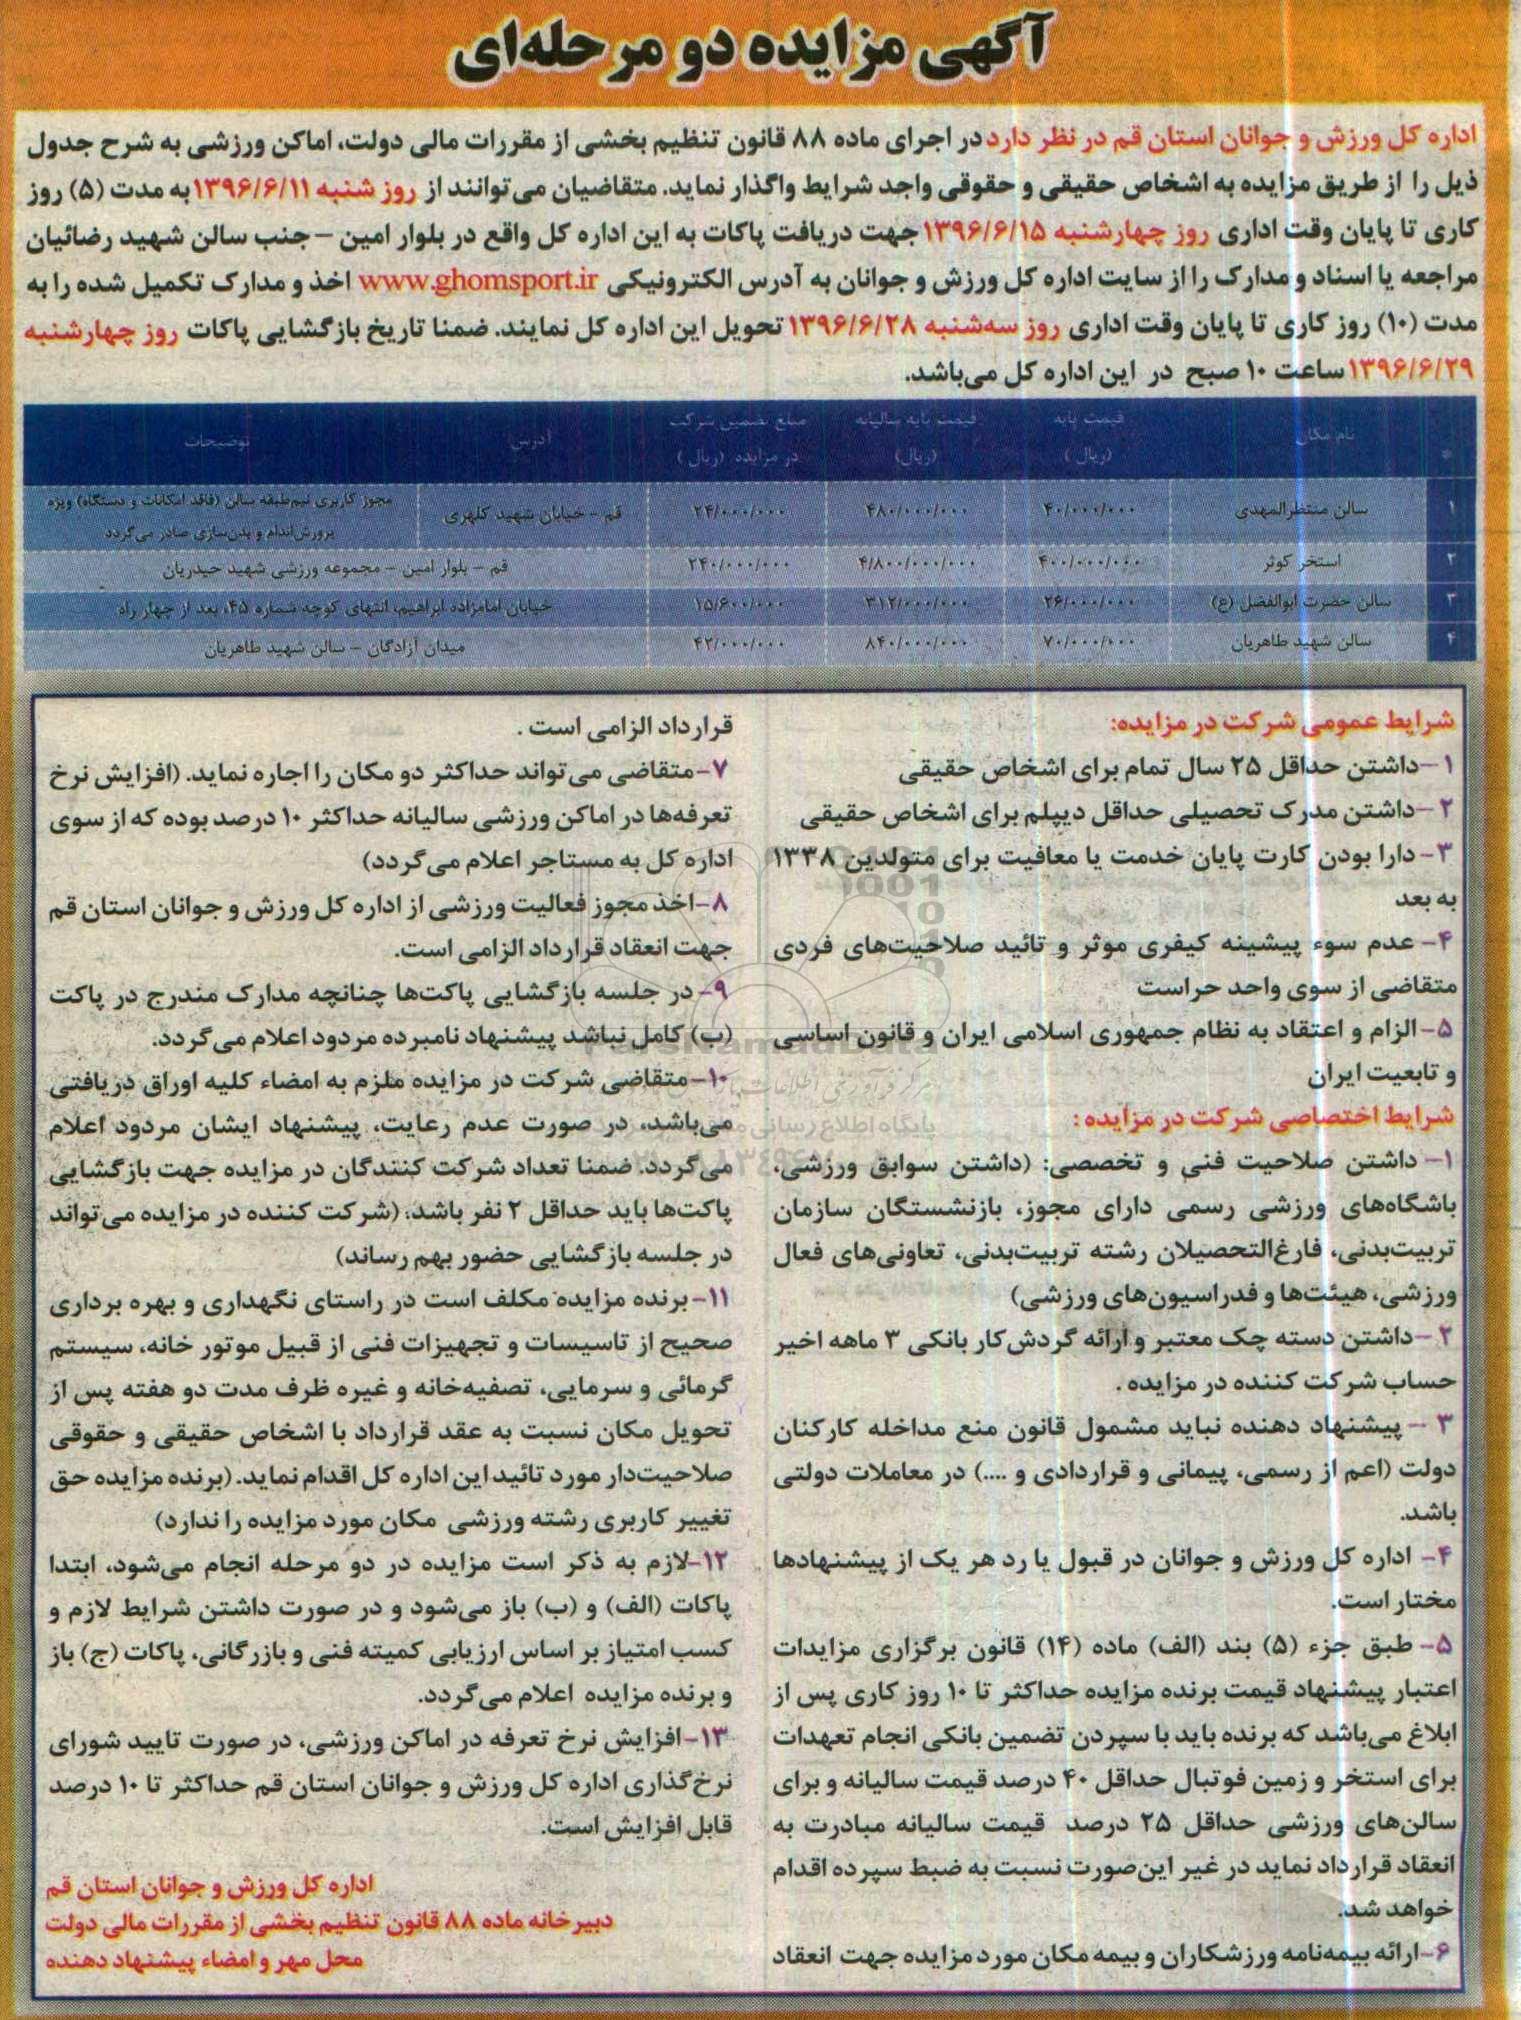 آگهی مزایده دو مرحله‌ای
اداره کل ورزش و جوانان استان قم در نظر دارد در اجرای ماده ۸۸ قانون تنظیم بخشی از مقررات مالی دولت، اماکن ورزشی به شرح جدول
ذیل را از طریق مزایده به اشخاص حقیقی و حقوقی واجد شرایط واگذار نماید. متقاضیان می‌توانند از روز شنبه ۱۳۹۶/۶/۱۱ به مدت (۵) روز
کاری تا پایان وقت اداری روز چهارشنبه ۱۳۹۶/۶/۱۵ جهت دریافت پاکات به این اداره کل واقع در بلوار امین – جنب سالن شهید رضائیان
مراجعه یا اسناد و مدارک را از سایت اداره کل ورزش و جوانان به آدرس الکترونیکی www.ghomsport.ir اخذ و مدارک تکمیل شده را به
مدت (۱۰) روز کاری تا پایان وقت اداری روز سه‌شنبه ۱۳۹۶/۶/۲۸ تحویل این اداره کل نمایند. ضمنا تاریخ بازگشایی پاکات روز چهارشنبه
۱۳۹۶/۶/۲۹ ساعت ۱۰ صبح در این اداره کل می‌باشد.
* نام مکان قیمت پایه (ریال) قیمت پایه سالیانه (ریال) مبلغ تضمین شرکت در مزایده (ریال) آدرس توضیحات
۱ سالن منتظرالمهدی ۴۰/۰۰۰/۰۰۰ ۴۸۰/۰۰۰/۰۰۰ ۲۴/۰۰۰/۰۰۰ قم - خیابان شهید کلهری مجوز کاربری نیم‌طبقه سالن (فاقد امکانات و دستگاه) ویژه پرورش‌اندام و بدن‌سازی صادر می‌گردد
۲ استخر کوثر ۴۰۰/۰۰۰/۰۰۰ ۴/۸۰۰/۰۰۰/۰۰۰ ۲۴۰/۰۰۰/۰۰۰ قم - بلوار امین - مجموعه ورزشی شهید حیدریان
۳ سالن حضرت ابوالفضل (ع) ۲۶/۰۰۰/۰۰۰ ۳۱۲/۰۰۰/۰۰۰ ۱۵/۶۰۰/۰۰۰ خیابان امامزاده ابراهیم، انتهای کوچه شماره ۴۵، بعد از چهار راه
۴ سالن شهید طاهریان ۷۰/۰۰۰/۰۰۰ ۸۴۰/۰۰۰/۰۰۰ ۴۲/۰۰۰/۰۰۰ میدان آزادگان - سالن شهید طاهریان
شرایط عمومی شرکت در مزایده:
۱-داشتن حداقل ۲۵ سال تمام برای اشخاص حقیقی
۲-داشتن مدرک تحصیلی حداقل دیپلم برای اشخاص حقیقی
۳- دارا بودن کارت پایان خدمت یا معافیت برای متولدین ۱۳۳۸
به بعد
۴- عدم سوء پیشینه کیفری موثر و تائید صلاحیت‌های فردی
متقاضی از سوی واحد حراست
۵- الزام و اعتقاد به نظام جمهوری اسلامی ایران و قانون اساسی
و تابعیت ایران
شرایط اختصاصی شرکت در مزایده :
۱- داشتن صلاحیت فنی و تخصصی: (داشتن سوابق ورزشی،
باشگاه‌های ورزشی رسمی دارای مجوز، بازنشستگان سازمان
تربیت‌بدنی، فارغ‌التحصیلان رشته تربیت‌بدنی، تعاونی‌های فعال
ورزشی، هیئت‌ها و فدراسیون‌های ورزشی)
۲ -داشتن دسته چک معتبر و ارائه گردش‌کار بانکی ۳ ماهه اخیر
حساب شرکت کننده در مزایده .
۳ – پیشنهاد دهنده نباید مشمول قانون منع مداخله کارکنان
دولت (اعم از رسمی، پیمانی و قراردادی و ....) در معاملات دولتی
باشد.
۴- اداره کل ورزش و جوانان در قبول یا رد هر یک از پیشنهادها
مختار است.
۵- طبق جزء (۵) بند (الف) ماده (۱۴) قانون برگزاری مزایدات
اعتبار پیشنهاد قیمت برنده مزایده حداکثر تا ۱۰ روز کاری پس از
ابلاغ می‌باشد که برنده باید با سپردن تضمین بانکی انجام تعهدات
برای استخر و زمین فوتبال حداقل ۴۰ درصد قیمت سالیانه و برای
سالن‌های ورزشی حداقل ۲۵ درصد قیمت سالیانه مبادرت به
انعقاد قرارداد نماید در غیر این‌صورت نسبت به ضبط سپرده اقدام
خواهد شد.
۶-ارائه بیمه‌نامه ورزشکاران و بیمه مکان مورد مزایده جهت انعقاد
قرارداد الزامی است .
۷-متقاضی می‌تواند حداکثر دو مکان را اجاره نماید. (افزایش نرخ
تعرفه‌ها در اماکن ورزشی سالیانه حداکثر ۱۰ درصد بوده که از سوی
اداره کل به مستاجر اعلام می‌گردد)
۸-اخذ مجوز فعالیت ورزشی از اداره کل ورزش و جوانان استان قم
جهت انعقاد قرارداد الزامی است.
۹- در جلسه بازگشایی پاکت‌ها چنانچه مدارک مندرج در پاکت
(ب) کامل نباشد پیشنهاد نامبرده مردود اعلام می‌گردد.
۱۰-متقاضی شرکت در مزایده ملزم به امضاء کلیه اوراق دریافتی
می‌باشد، در صورت عدم رعایت، پیشنهاد ایشان مردود اعلام
می‌گردد. ضمنا تعداد شرکت کنندگان در مزایده جهت بازگشایی
پاکت‌ها باید حداقل ۲ نفر باشد، (شرکت کننده در مزایده می‌تواند
در جلسه بازگشایی حضور بهم رساند)
۱۱-برنده مزایده مکلف است در راستای نگهداری و بهره برداری
صحیح از تاسیسات و تجهیزات فنی از قبیل موتور خانه، سیستم
گرمائی و سرمایی، تصفیه‌خانه و غیره ظرف مدت دو هفته پس از
تحویل مکان نسبت به عقد قرارداد با اشخاص حقیقی و حقوقی
صلاحیت‌دار مورد تائید این اداره کل اقدام نماید. (برنده مزایده حق
تغییر کاربری رشته ورزشی مکان مورد مزایده را ندارد)
۱۲-لازم به ذکر است مزایده در دو مرحله انجام می‌شود، ابتدا
پاکات (الف) و (ب) باز می‌شود و در صورت داشتن شرایط لازم و
کسب امتیاز بر اساس ارزیابی کمیته فنی و بازرگانی، پاکات (ج) باز
و برنده مزایده اعلام می‌گردد.
۱۳-افزایش نرخ تعرفه در اماکن ورزشی، در صورت تایید شورای
نرخ‌گذاری اداره کل ورزش و جوانان استان قم حداکثر تا ۱۰ درصد
قابل افزایش است.
اداره کل ورزش و جوانان استان قم
دبیرخانه ماده ۸۸ قانون تنظیم بخشی از مقررات مالی دولت
محل مهر و امضاء پیشنهاد دهنده